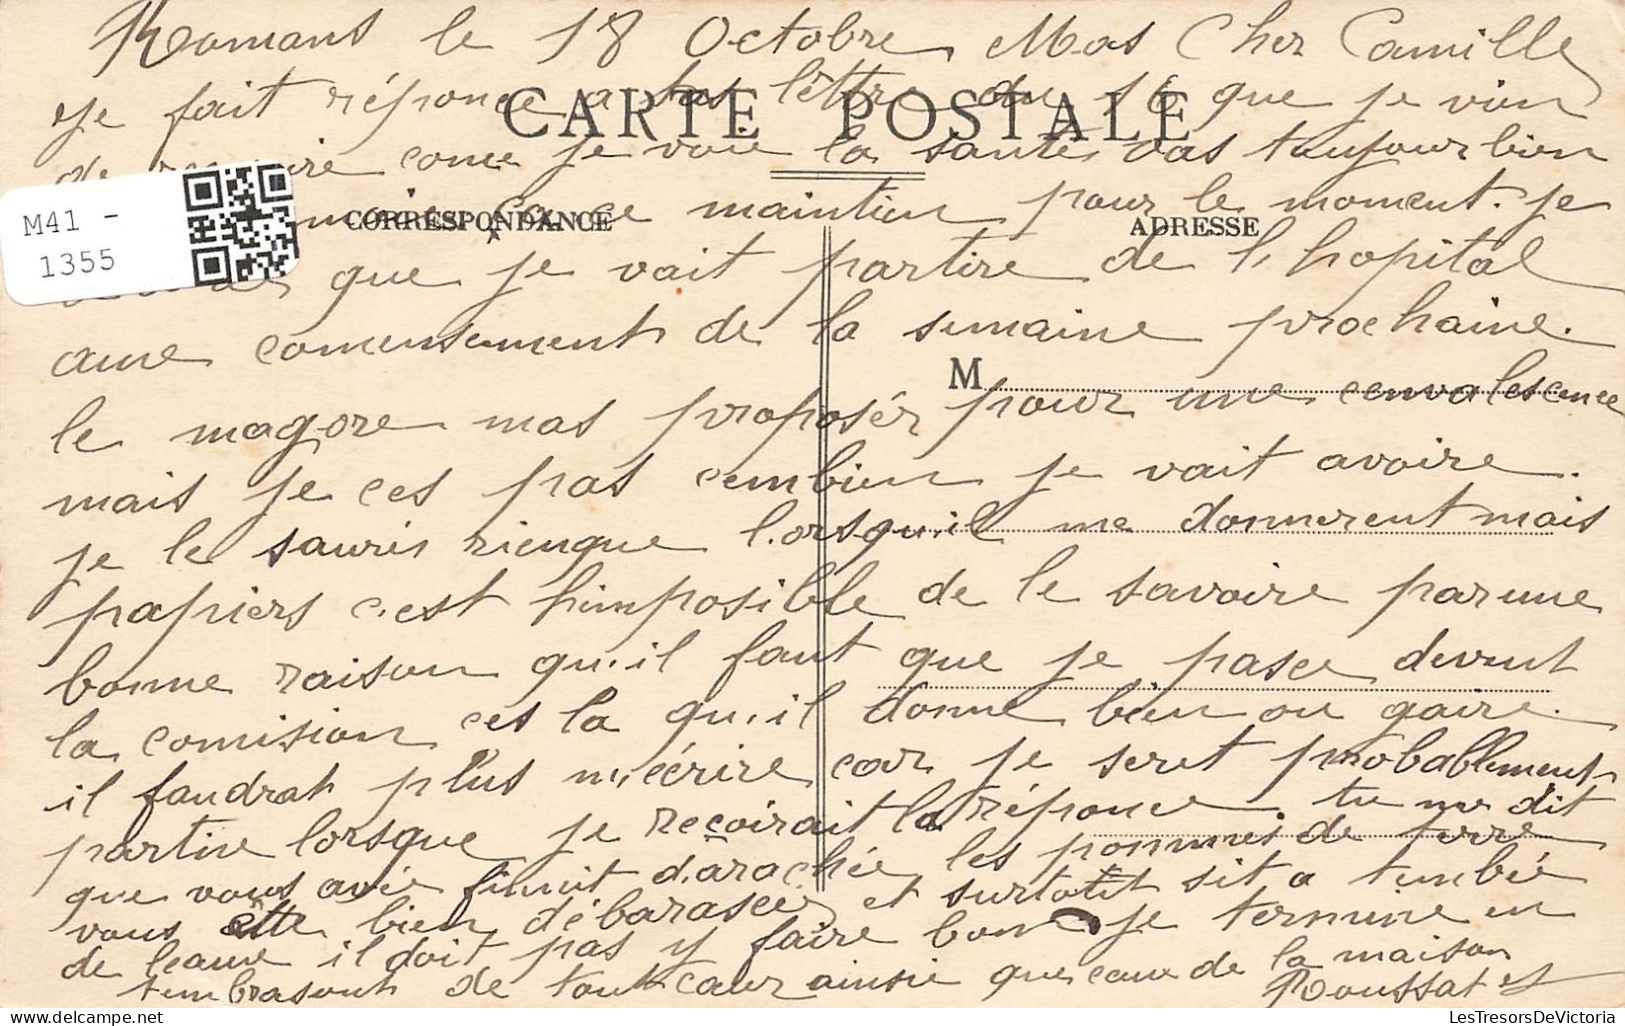 Romans le 18 Octobre Mos Cher Camille
je fait réponce a tas lettre du 16 que je vien
CARTE POSTALE
de ire come je voie la santé vas toujour bien
M41 - 1355
CORRESPONDANCE
ADRESSE
ce maintien pour le moment. je
que je vait partire de l'hopital
aue comensement de la semaine prochaine.
M
le magore mas proposér pour une convalescence
mais je ces pas combien je vait avoire.
je le saurés rienque lorsqu'il me donnerent mais
papiers c'est himposible de le savoire par une
bonne raison qu'il faut que je passe devent
la comision ces la qu'il donne bien ou gaire.
il faudrat plus m'écrire car je seret probablement
partire lorsque je reçoirait la réponce tu me dit
que vous avée finuit d'arachée les pommes de terre
vous ette bien débarasée et surtout sit a tembée
de leaue il doit pas y faire bon je termine en
tembrasent de tout cœur ainsie que ceux de la maison
Roussat
LesTresorsDeVictoria